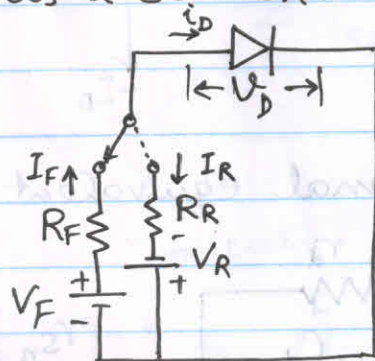 i_D
V_D
I_F I_R
R_F R_R
-
+ V_R
V_F +
-